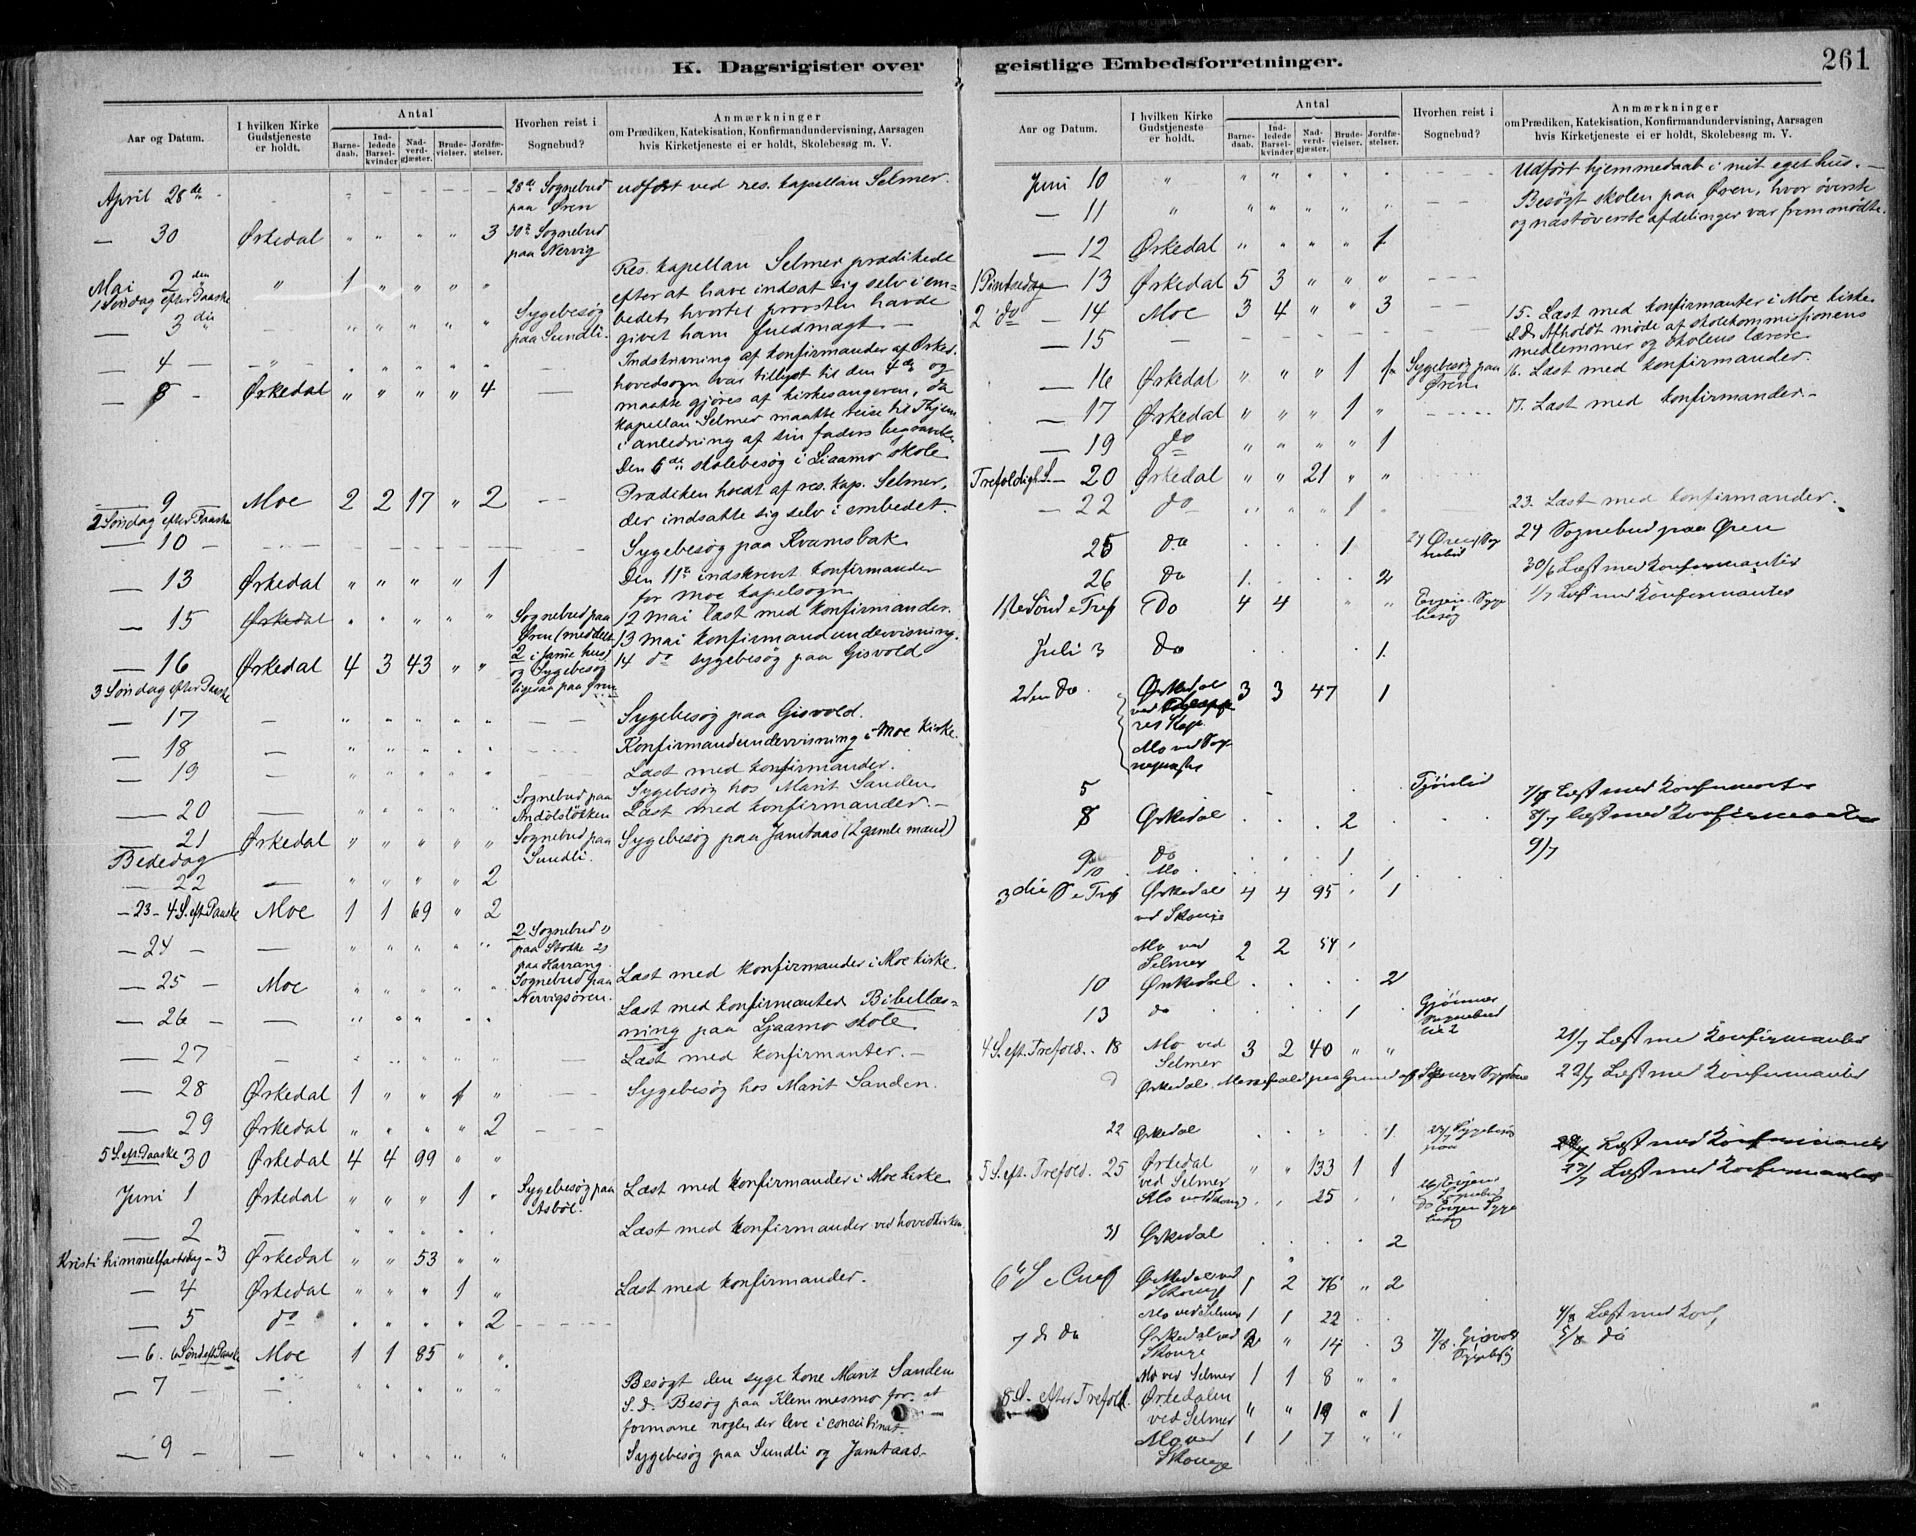 K. Dagsrigister over
Aar og Datum. I hvilken Kirke Gudstjeneste er holdt. Antal Barnedaab. Indledede Barselkvinder Nadverdgjæster. Brudevielser. Jordfæstelser. Hvorhen reist i Sognebud? Anmærkninger om Prædiken, Katekisation, Konfirmandundervisning, Aarsagen hvis Kirketjeneste ei er holdt, Skolebesøg m. V.
April 28de 28de Sognebud paa Øren udført ved res. kapellan Selmer.
— 30 Ørkedal " " " " 3 30te Sognebud paa Nervig
Mai 2den " 1 " " " " Res. kapellan Selmer prædikede
1 Søndag efter Paaske efter at have indsat sig selv i em-
— 3die " " " " " Sygebesøg paa Sundli. bedet, hvortil provsten havde
givet ham fuldmagt. —
— 4 — " Indskrivning af konfirmander af Ørked.
hovedsogn var tillyst til den 4de og
— 8 - Ørkedal " " " " 4 — maatte gjøres af kirkesangeren, da
kapellan Selmer maatte reise til Thjem
i anledning af sin faders begravelse
Den 6te skolebesøg i Liaamo skole
— 9 Moe 2 2 17 " 2 Prædiken holdt af res. kap. Selmer,
2 Søndag efter Paaske der indsatte sig selv i embedet.
— 10 — Sygebesøg paa Kvamsbak
— 13 Ørkedal " " " " 1 Den 11te indskrevet konfirmander
for Moe kapelsogn
— 15 Ørkedal " " " " " Sognebud paa 12 mai læst med konfirmander.
Øren (meddelt 13 mai konfirmandundervisning.
— 16 Ørkedal 4 3 43 " " 2 i samme hus) og Sygebesøg 14 do sygebesøg paa Gisvold
3 Søndag efter Paaske ligesaa paa Øren
— 17 — Sygebesøg paa Gisvold.
— 18 — Konfirmandundervisning i Moe kirke.
— 19 — Læst med konfirmander.
Sygebesøg hos Marit Sanden
— 20 — Sognebud paa Andölsløkken Læst med konfirmander. —
— 21 Ørkedal " " " " " Sognebud paa Sundli. Sygebesøg paa Jamtaas (2 gamle mænd)
Bededag
— 22 — " " " " 2
— 23 - 4 S. eft Paaske Moe 1 1 69 " 2
— 24 — 2 Sognebud 1) paa Stokke 2) paa Harrang
— 25 — Moe Sognebud paa Nervigsøren. Læst med konfirmander i Moe kirke.
— 26 — Læst med konfirmanter. Bibellæs-
ning paa Ljaamo skole
— 27 — Læst med konfirmanter. —
— 28 Ørkedal 1 " " 1 " Sygebesøg hos Marit Sanden.
— 29 Ørkedal " " " " 2
5 S. eft. Paaske 30 Ørkedal 4 4 99 " "
Juni 1 Ørkedal " " " 1 " Sygebesøg paa Asbøl. Læst med konfirmander i Moe kirke
— 2 — Læst med konfirmander ved hovedkirken.
Kristi himmelfartsdag - 3 Ørkedal " " 53 " "
— 4 Ørkedal " " " 1 " Læst med konfirmander.
— 5 do " " " " 2
— 6. 6 Sønd eft Paaske Moe 1 1 85 " "
— 7 — Besøgt den syge kone Marit Sanden
S. d. Besøg paa Klemmesmo for at
formane nogle, der leve i concubinat.
— 9 — Sygebesøg paa Sundli og Jamtaas.
geistlige Embedsforretninger. 261
Aar og Datum. I hvilken Kirke Gudstjeneste er holdt. Antal Barnedaab. Indledede Barselkvinder Nadverdgjæster. Brudevielser. Jordfæstelser. Hvorhen reist i Sognebud? Anmærkninger om Prædiken, Katekisation, Konfirmandundervisning, Aarsagen hvis Kirketjeneste ei er holdt, Skolebesøg m. V.
Juni 10 " Udført hjemmedaab i mit eget hus. —
— 11 " Besøgt skolen paa Øren, hvor øverste
og næstøverste afdelinger var fremmødte.
— 12 Ørkedal " " " " 1
1 Pintsedag — 13 Ørkedal 5 3 " " "
2 do — 14 Moe 3 4 " " 3 15. Læst med konfirmanter i Moe kirke.
— 15 — S.D. Afholdt møde af skolekommissionens
medlemmer og skolens lærere
— 16 Ørkedal " " " 1 1 Sygebesøg paa Øren. 16. Læst med konfirmander.
— 17 Ørkedal " " " 1 " 17. Læst med konfirmander. —
— 19 do " " " " 1
Trefoldigh. S. — 20 Ørkedal " " 21 " "
— 22 do 1 23. Læst med konfirmander.
25 do 1 24 Øren Sognebud 24 Sognebud paa Øren
26 do 1 2 30/6 Læst med Konfirmanter
1ste Sønd e Tref Do 4 4 " " Sygebesøg 1/7 Læst med Konfirmantes
Juli 3 Do 1
2den Do Ørkedal 3 3 47 1
ved
res Kap.
Mo ved Sog-
nepræst
5 Tjönlid 7/7 Læst med Konfirmanter
8 Ørkedal 2 8/7 Læst med Konfirmanter
9 do 1 9/7
10 Mo 1
3die S e Tref Ørkedal ved Skouge 4 4 95 1
Mo ved Selmer 2 2 54
10 Ørkedal 2
13 do 1 Gjönnes Sognebud 2
4 S. eft. Trefold. 18 Mo ved Selmer 3 2 40 " " 21/7 Læst med Konfirmanter
Ørkedal. Messefald paa Grund af Skouges Sygdom 22/7 Læst med Konfirmanter
22 Ørkedal 1 Sygebesøg Læst med Konfirmanter
5 S. eft. Trefold. 25 Ørkedal ved Selmer " " 133 1 1 Læst med Konfirmanter
Mo ved Skouge 25 Sognebud Sygebesøg
31 Ørkedal 2
6te S e Tref Ørkedal ved Skouge 1 2 76 " 2
Mo ved Selmer 1 1 22 4/8 Læst med Konf,
7 d do Ørkedal ved Skouge 2 " 14 3 7/8. Gisvold Sygebesøg 5/8 do
Mo ved Selmer 1 1 8 " "
8 S. efter Trefold. Ørkedalen ved Selmer " " 19 " 1
Mo ved Skouge 1 1 7 " "